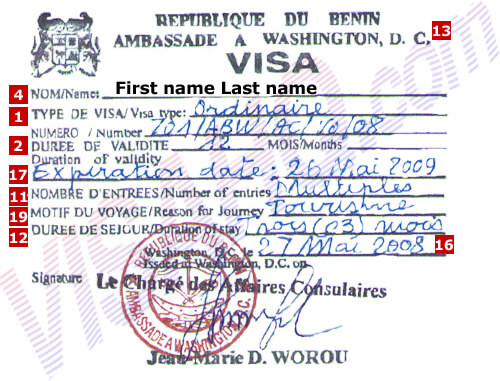 REPUBLIQUE DU BENIN
AMBASSADE A WASHINGTON, D. C. 13
VISA
4 NOM/Name: First name Last name
1 TYPE DE VISA/Visa type: Ordinaire
NUMERO / Number 701/ABW/AC/VO/08
2 DUREE DE VALIDITE 12 MOIS/Months
Duration of validity
17 Expiration date: 26 Mai 2009
11 NOMBRE D'ENTREES/Number of entries Multiples
19 MOTIF DU VOYAGE/Reason for Journey Tourisme
12 DUREE DE SEJOUR/Duration of stay Trois (03) mois
Washington, D.C. le 27 Mai 2008 16
Issued in Washington, D.C. on
Signature Le Chargé des Affaires Consulaires
REPUBLIQUE DU BENIN
AMBASSADE A WASHINGTON, D.C.
Jean-Marie D. WOROU